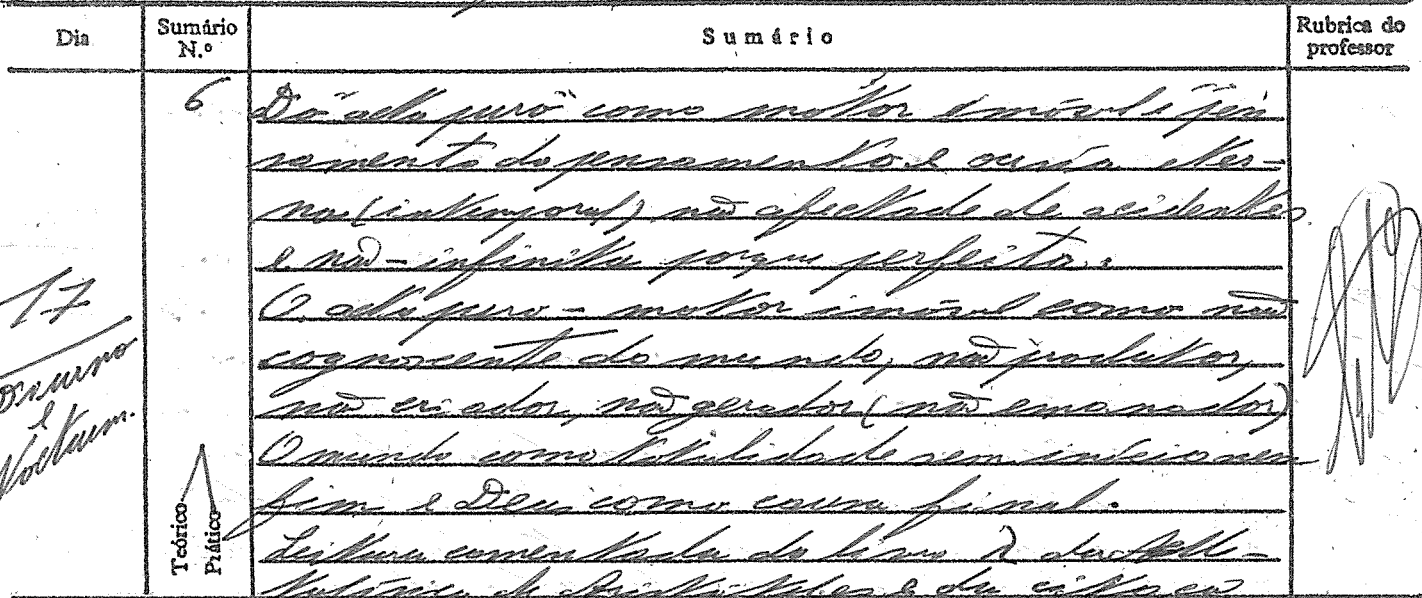 Dia
Sumário N.º
Sumário
Rubrica do professor
6
Do "acto puro" como motor imóvel, "pen
samento do pensamento" e ousía eter-
na (intemporal) não afectada de acidentes
e não-infinita porque perfeita.
O acto puro - motor imóvel como não
cognoscente do mundo, não produtor,
não criador, não gerador (não emanador)
O mundo como totalidade sem início nem
fim e Deus como causa final.
Leitura comentada do livro λ da Me-
tafísica de Aristóteles e da
17
Diurno
e
Nocturn.
Teórico
Prático